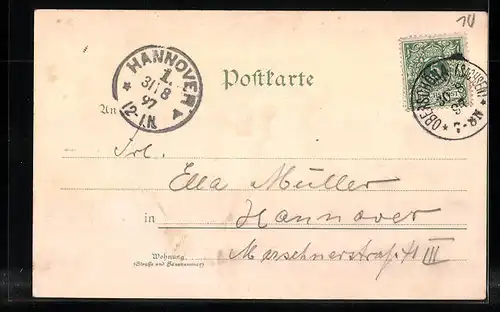 HANNOVER
1.
31 8
97
12-1.N
Postkarte
An
Frl.
Ella Müller
in Hannover
Wohnung
(Straße und Hausnummer)
Marschnerstraße 41 III